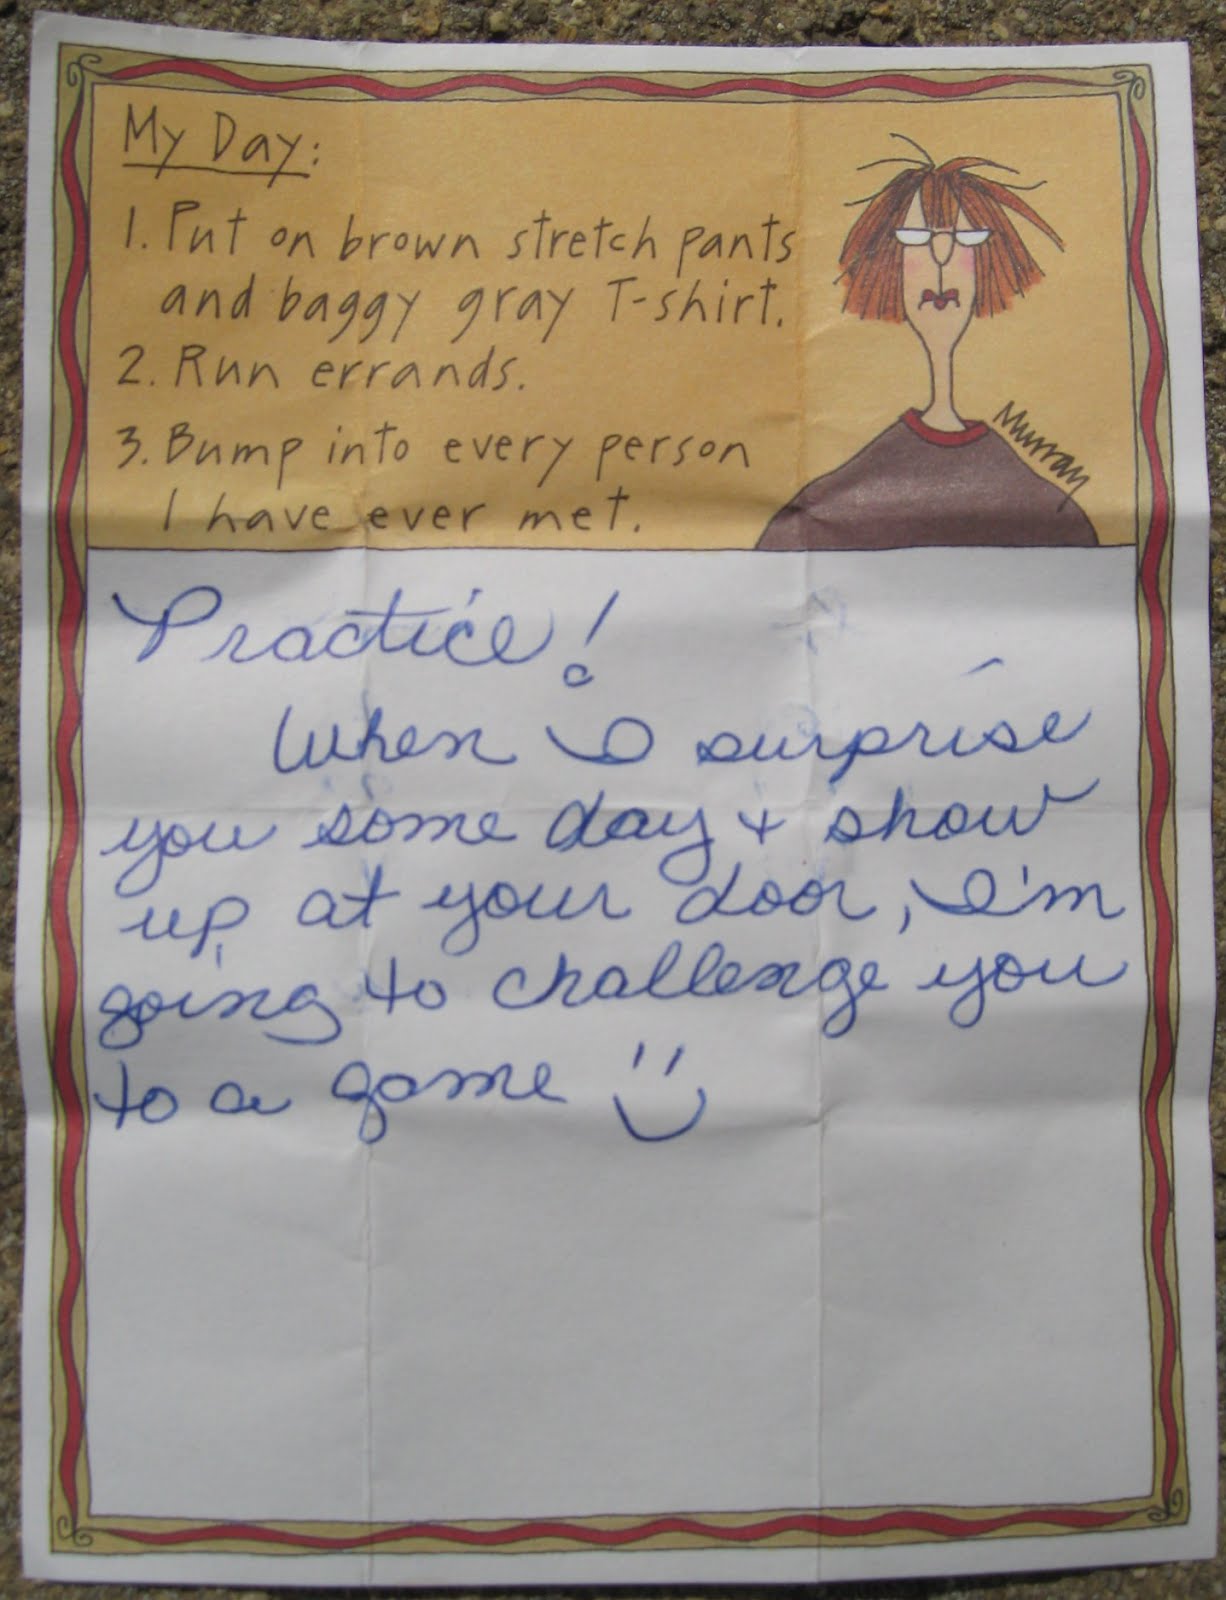 My Day:
1. Put on brown stretch pants
and baggy gray T-shirt.
2. Run errands.
3. Bump into every person
I have ever met.
Murray
Practice!
When I surprise
you some day + show
up at your door, I'm
going to challenge you
to a game